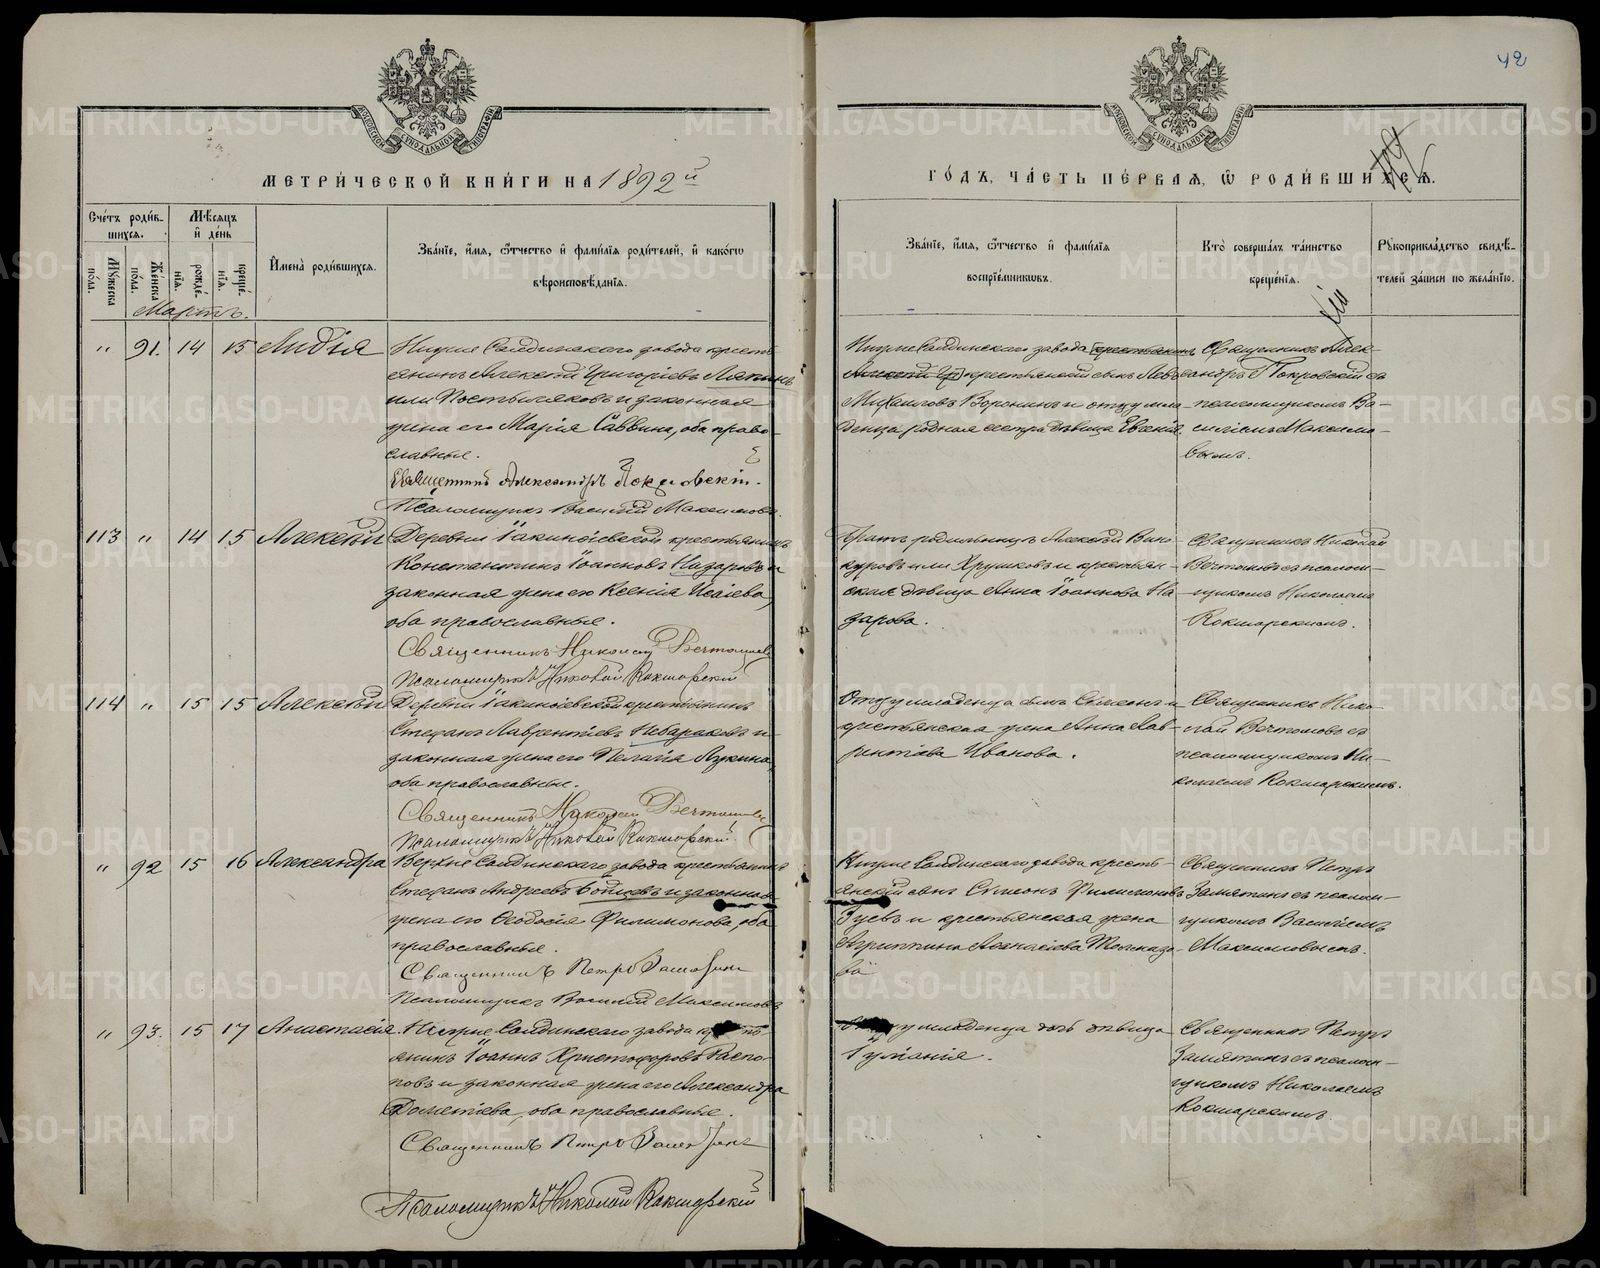 42
МОСКОВСКОЙ СѶНОДАЛЬНОЙ ТИПОГРАФІИ
МОСКОВСКОЙ СѶНОДАЛЬНОЙ ТИПОГРАФІИ
МЕТРИ́ЧЕСКОЙ КНИ́ГИ НА 1892й
ГО́ДЪ, ЧА́СТЬ ПЕ́РВАЯ, Ѽ РОДИ́ВШИХСЯ.
Сче́тъ роди́в-
шихся.
Му́жеска
по́ла.
Же́нска
по́ла.
Мѣ́сяцъ
и҆ де́нь
рожде́-
нїя.
креще́-
нїя.
И҆мена̀ роди́вшихся.
Зва́нїе, и҆́мя, ѻ҆́тчество и҆ фами́лїя роди́телей, и҆ како́гѡ
вѣроисповѣ́данїя.
Зва́нїе, и҆́мя, ѻ҆́тчество и҆ фами́лїя
воспрїе́мникѡвъ.
Кто̀ соверша́лъ та́инство
креще́нїя.
Рꙋкоприкла́дство свидѣ́-
телей за́писи по жела́нїю.
Мартъ.
" 91. 14 15 Лидія
Нижне Салдинскаго завода кресть-
янинъ Алексѣй Григоріевъ Ляпинъ
или Постыляковъ и законная
жена его Марія Саввина, оба право-
славные.
Священникъ Александръ Покровскій.
Псаломщикъ Василій Максимовъ.
Нижне Салдинскаго завода крестьянинъ
Алексѣй Гр крестьянскій сынъ Левъ
Михаиловъ Воронинъ и отцу мла-
денца родная сестра дѣвица Евгенія.
Священникъ Алек-
сандръ Покровскій съ
псаломщикомъ Ва-
силіемъ Максимо-
вымъ.
113 " 14 15 Алексѣй
Деревни Іакинѳіевской крестьянинъ
Константинъ Іоанновъ Назаровъ и
законная жена его Ксенія Исаіева,
оба православные.
Священникъ Николай Вечтомовъ
Псаломщикъ Николай Кокшарскій
Братъ родильницъ Алексѣй Вино-
куровъ или Хрушковъ и крестьян-
ская дѣвица Анна Іоаннова На-
зарова.
Священникъ Николай
Вечтомовъ съ псалом-
щикомъ Николаемъ
Кокшарскимъ.
114 " 15 15 Алексѣй
Деревни Іакинѳіевской крестьянинъ
Стефанъ Лаврентіевъ и
законная жена его Пелагія
оба православные.
Священникъ Николай Вечтомовъ
Псаломщикъ Николай Кокшарскій
Отцу младенца сынъ Симеонъ и
крестьянская жена Анна Лав-
рентіева Иванова.
Священникъ Нико-
лай Вечтомовъ съ
псаломщикомъ Ни-
колаемъ Кокшарскимъ.
" 92 15 16 Александра
Верхне Салдинскаго завода крестьянинъ
Стефанъ Андреевъ и законная
жена его Ѳеодосія Филимонова, оба
православные.
Священникъ Петръ Замятинъ
Псаломщикъ Василій Максимовъ
Нижне Салдинскаго завода кресть-
янскій сынъ Симеонъ Филимоновъ
Гуевъ и крестьянская жена
Агриппина Аѳанасіева
ва
Священникъ Петръ
Замятинъ съ псалом-
щикомъ Василіемъ
Максимовымъ.
" 93. 15 17 Анастасія.
Нижне Салдинскаго завода кресть-
янинъ Іоаннъ Христофоровъ Распо-
повъ и законная жена его Александра
Дометіева, оба православные.
Священникъ Петръ Замятинъ
Псаломщикъ Николай Кокшарскій
младенца дочь дѣвица
Іуліанія.
Священникъ Петръ
Замятинъ съ псалом-
щикомъ Николаемъ
Кокшарскимъ
METRIKI.GASO-URAL.RU